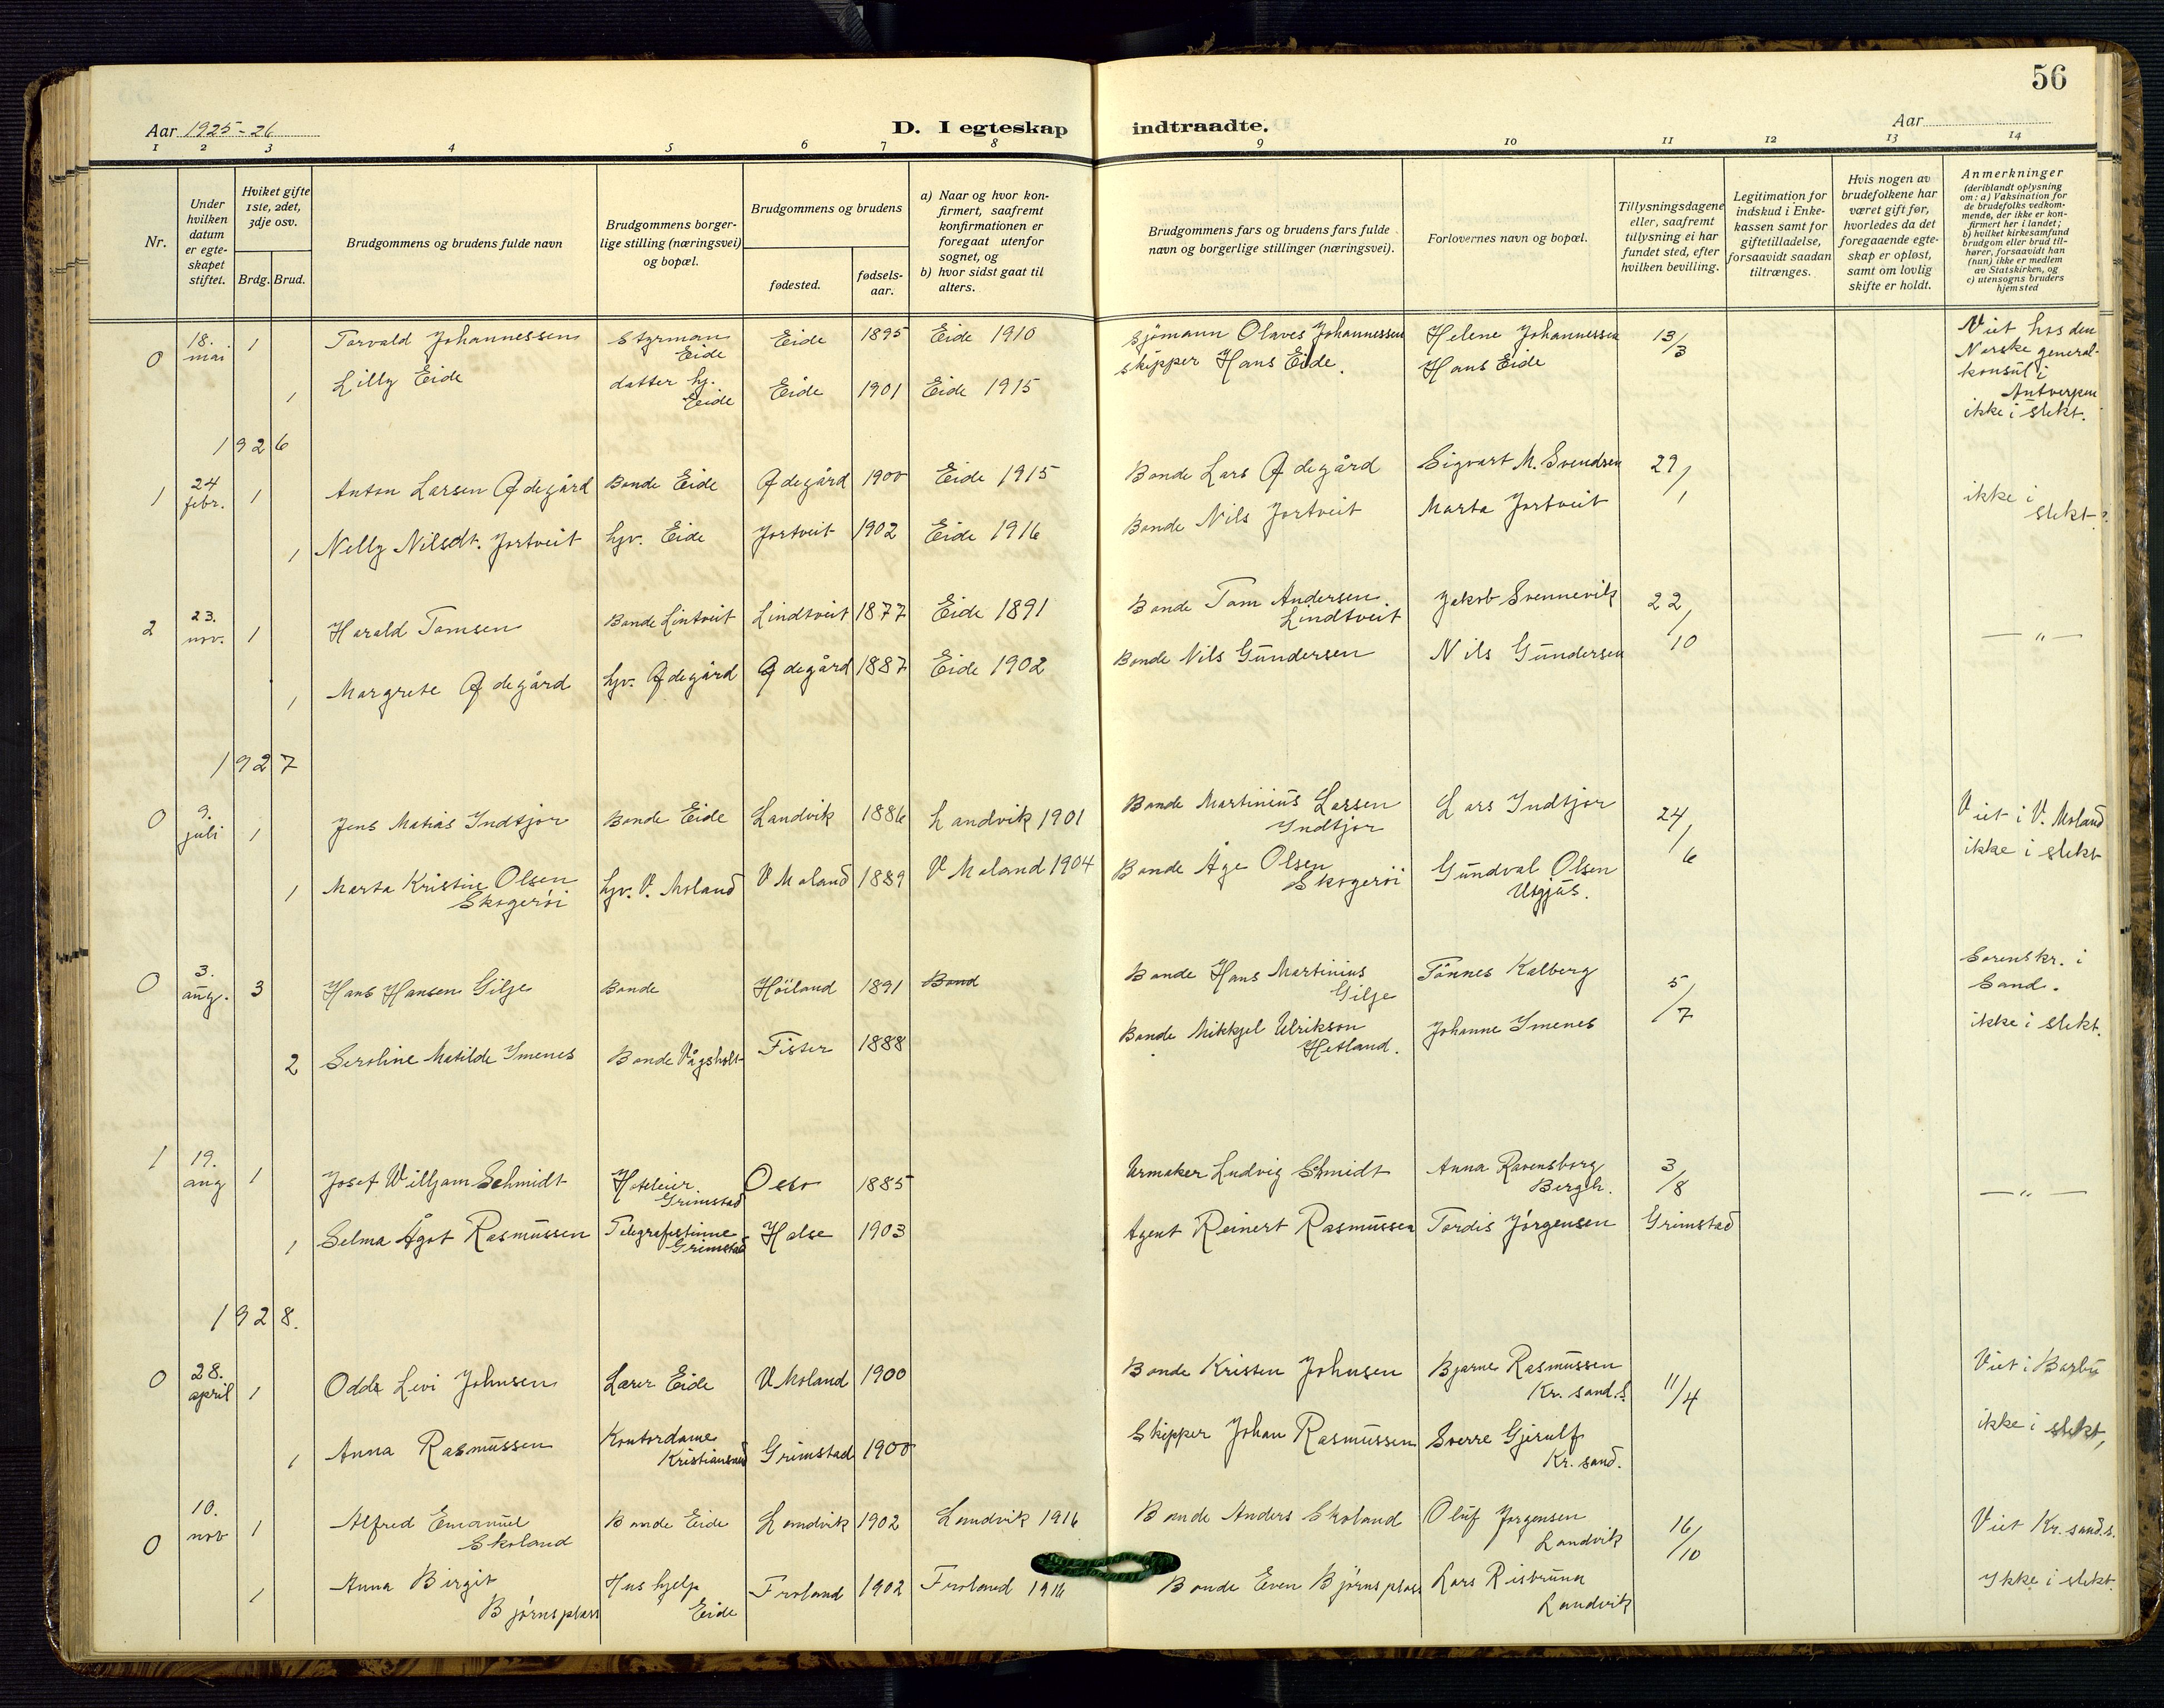 56
Aar 1925-26
D. I egteskap indtraadte.
Aar
1 2 3 4 5 6 7 8 9 10 11 12 13 14
Nr.
Under hvilken datum er egteskapet stiftet.
Hviket gifte 1ste, 2det, 3dje osv.
Brdg. Brud.
Brudgommens og brudens fulde navn
Brudgommens borgerlige stilling (næringsvei) og bopæl.
Brudgommens og brudens
fødested.
fødselsaar.
a) Naar og hvor konfirmert, saafremt konfirmationen er foregaat utenfor sognet, og
b) hvor sidst gaat til alters.
Brudgommens fars og brudens fars fulde navn og borgerlige stillinger (næringsvei).
Forlovernes navn og bopæl.
Tillysningsdagene eller, saafremt tillysning ei har fundet sted, efter hvilken bevilling.
Legitimation for indskud i Enkekassen samt for giftetilladelse, forsaavidt saadan tiltrænges.
Hvis nogen av brudefolkene har været gift før, hvorledes da det foregaaende egteskap er opløst, samt om lovlig skifte er holdt.
Anmerkninger
(deriblandt oplysning om: a) Vaksination for de brudefolks vedkommende, der ikke er konfirmert her i landet; b) hvilket kirkesamfund brudgom eller brud tilhører, forsaavidt han (hun) ikke er medlem av Statskirken, og c) utensogns bruders hjemsted
0 18. mai 1 Torvald Johannessen Styrman Eide Eide 1895 Eide 1910 Sjömann Olaves Johannessen Helene Johannessen 13/3 Viet hos den Norske generalkonsul i Antverpen
1 Lilly Eide datter hj. Eide Eide 1901 Eide 1915 skipper Hans Eide. Hans Eide ikke i slekt.
1926
1 24 febr. 1 Anton Larsen Ødegård Bonde Eide Ødegård 1900 Eide 1915 Bonde Lars Ødegård Sigvart M. Svendsen 29/1 ikke i slekt.
1 Nelly Nilsdt. Jortveit hjv. Eide Jortveit 1902 Eide 1916 Bonde Nils Jortveit Marta Jortveit
2 23. nov. 1 Harald Tomsen Bonde Lintveit Lindtveit 1877 Eide 1891 Bonde Tom Andersen Lindtveit Jakob Svennevik 22/10 — " —
1 Margrete Ødegård hjv. Ødegård Ødegård 1887 Eide 1902 Bonde Nils Gundersen Nils Gundersen
1927
0 9. juli 1 Jens Matias Indtjor Bonde Eide Landvik 1886 Landvik 1901 Bonde Martinius Larsen Indtjor Lars Indtjor 24/6 Viet i V. Moland
1 Marta Kristine Olsen Skogerøi hjv. V. Moland V Moland 1889 V Moland 1904 Bonde Åge Olsen Skogerøi Gundval Olsen ikke i slekt
0 3. aug. 3 Hans Hansen Gilje Bonde Höiland 1891 Bond Bonde Hans Martinius Gilje Tönnes Kalberg 5/7 Sorenskr. i Sand.
2 Seroline Matilde Imenes Bonde Vågsholt Fister 1888 Bonde Mikkjel Ulrikson Hetland. Johanne Imenes ikke i slekt.
1 19. aug 1 Josef Willjam Schmidt Hoteleier Grimstad Oslo 1885 Urmaker Ludvig Schmidt Anna Ravensborg Bergh. 3/8 — " —
1 Selma Ågot Rasmussen Telegrafistinne Grimstad Halse 1903 Agent Reinert Rasmussen Tordis Jörgensen Grimstad
1928.
0 28. april 1 Odds Levi Johnsen Lærer Eide V Moland 1900 Bonde Kristen Johnsen Bjarne Rasmussen Kr. sand. S. 11/4 Viet i Barbu
1 Anna Rasmussen Kontordame Kristiansand Grimstad 1900 Skipper Johan Rasmussen Sverre Gjerulf Kr. sand. ikke i slekt,
0 10. nov 1 Alfred Emanuel Skoland Bonde Eide Landvik 1902 Landvik 1916 Bonde Anders Skoland Oluf Jorgensen Landvik 16/10 Viet Kr. sand. s.
1 Anna Birgit Bjørnsplass Hushjelp Eide Froland 1902 Froland 1916 Bonde Even Bjørnsplass Lars Risbrunn Landvik Ikke i slekt.